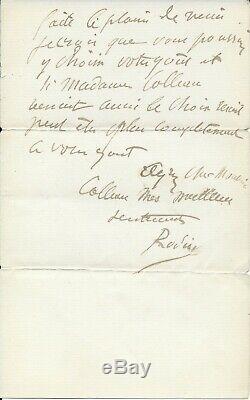 faite le plaisir de venir
je crois que vous pouvez
y choisir votre goût et
si Madame Colleau
venait aussi le choix serait
peut être plus complètement
à votre goût
Agréez cher Monsieur
Colleau mes meilleurs
sentiments
Rodin
ebay